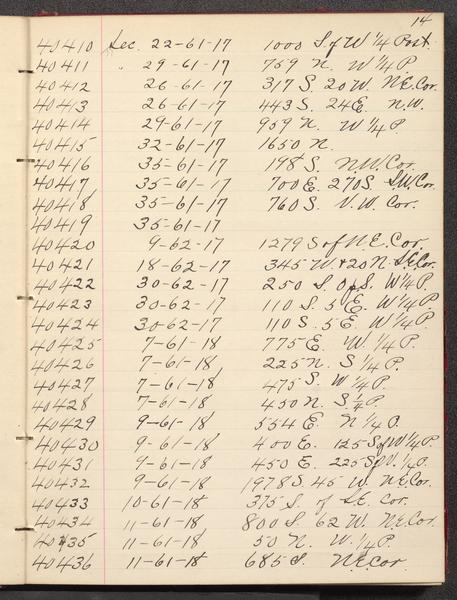 14
40410 Sec. 22-61-17 1000 S. of W 1/4 Post.
40411 " 29-61-17 759 N. W 1/4 P.
40412 26-61-17 317 S. 20 W. N.E. Cor.
40413 26-61-17 443 S. 24 E. N.W.
40414 29-61-17 959 N. W 1/4 P.
40415 32-61-17 1650 N.
40416 35-61-17 198 S. N.W. Cor.
40417 35-61-17 700 E. 270 S. S.W. Cor.
40418 35-61-17 760 S. N.W. Cor.
40419 35-61-17
40420 9-62-17 1279 S of N.E. Cor.
40421 18-62-17 345 W. + 20 N. S.E. Cor.
40422 30-62-17 250 S. of S. W 1/4 P.
40423 30-62-17 110 S. 5 E. W 1/4 P
40424 30-62-17 110 S. 5 E. W 1/4 P.
40425 7-61-18 775 E. W. 1/4 P.
40426 7-61-18 225 N. S 1/4 P.
40427 7-61-18 475 S. W 1/4 P.
40428 7-61-18 450 N. S 1/4 P.
40429 9-61-18 554 E. N 1/4 P.
40430 9-61-18 400 E. 125 S of W 1/4 P
40431 9-61-18 450 E. 225 S of W. 1/4 P.
40432 9-61-18 1978 S. 45 W. N.E. Cor.
40433 10-61-18 375 S. of S.E. Cor.
40434 11-61-18 800 S. 62 W. N.E. Cor.
40435 11-61-18 50 N. W. 1/4 P.
40436 11-61-18 685 S. N.E. Cor.